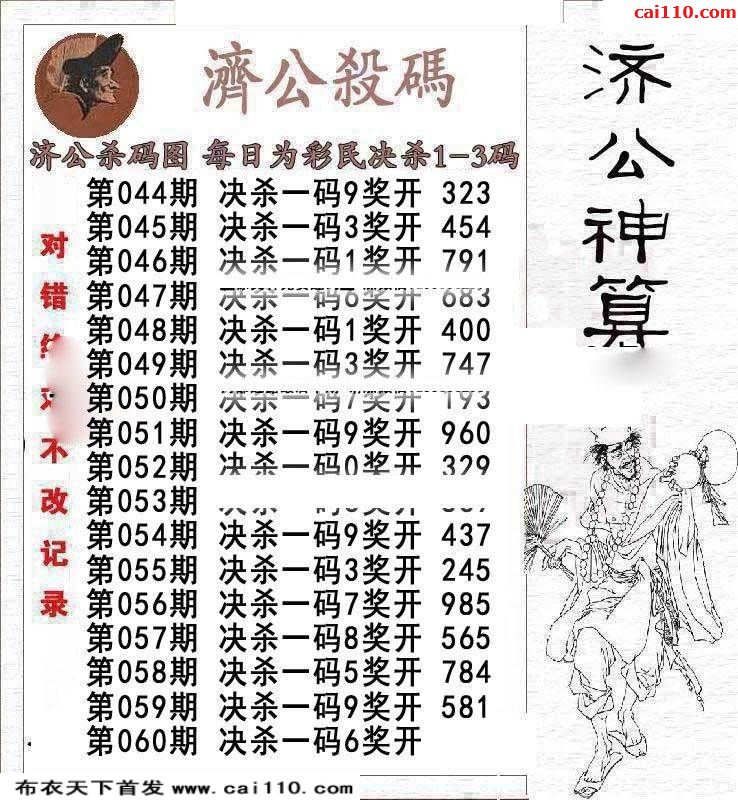 cai110.com
濟公殺碼
济公杀码图 每日为彩民决杀1-3码
第044期 决杀一码9奖开 323
第045期 决杀一码3奖开 454
第046期 决杀一码1奖开 791
第047期 决杀一码6奖开 683
第048期 决杀一码1奖开 400
第049期 决杀一码3奖开 747
第050期 决杀一码7奖开 193
第051期 决杀一码9奖开 960
第052期 决杀一码0奖开 329
第053期
第054期 决杀一码9奖开 437
第055期 决杀一码3奖开 245
第056期 决杀一码7奖开 985
第057期 决杀一码8奖开 565
第058期 决杀一码5奖开 784
第059期 决杀一码9奖开 581
第060期 决杀一码6奖开
对错绝对不改记录
济公神算
布衣天下首发 www.cai110.com